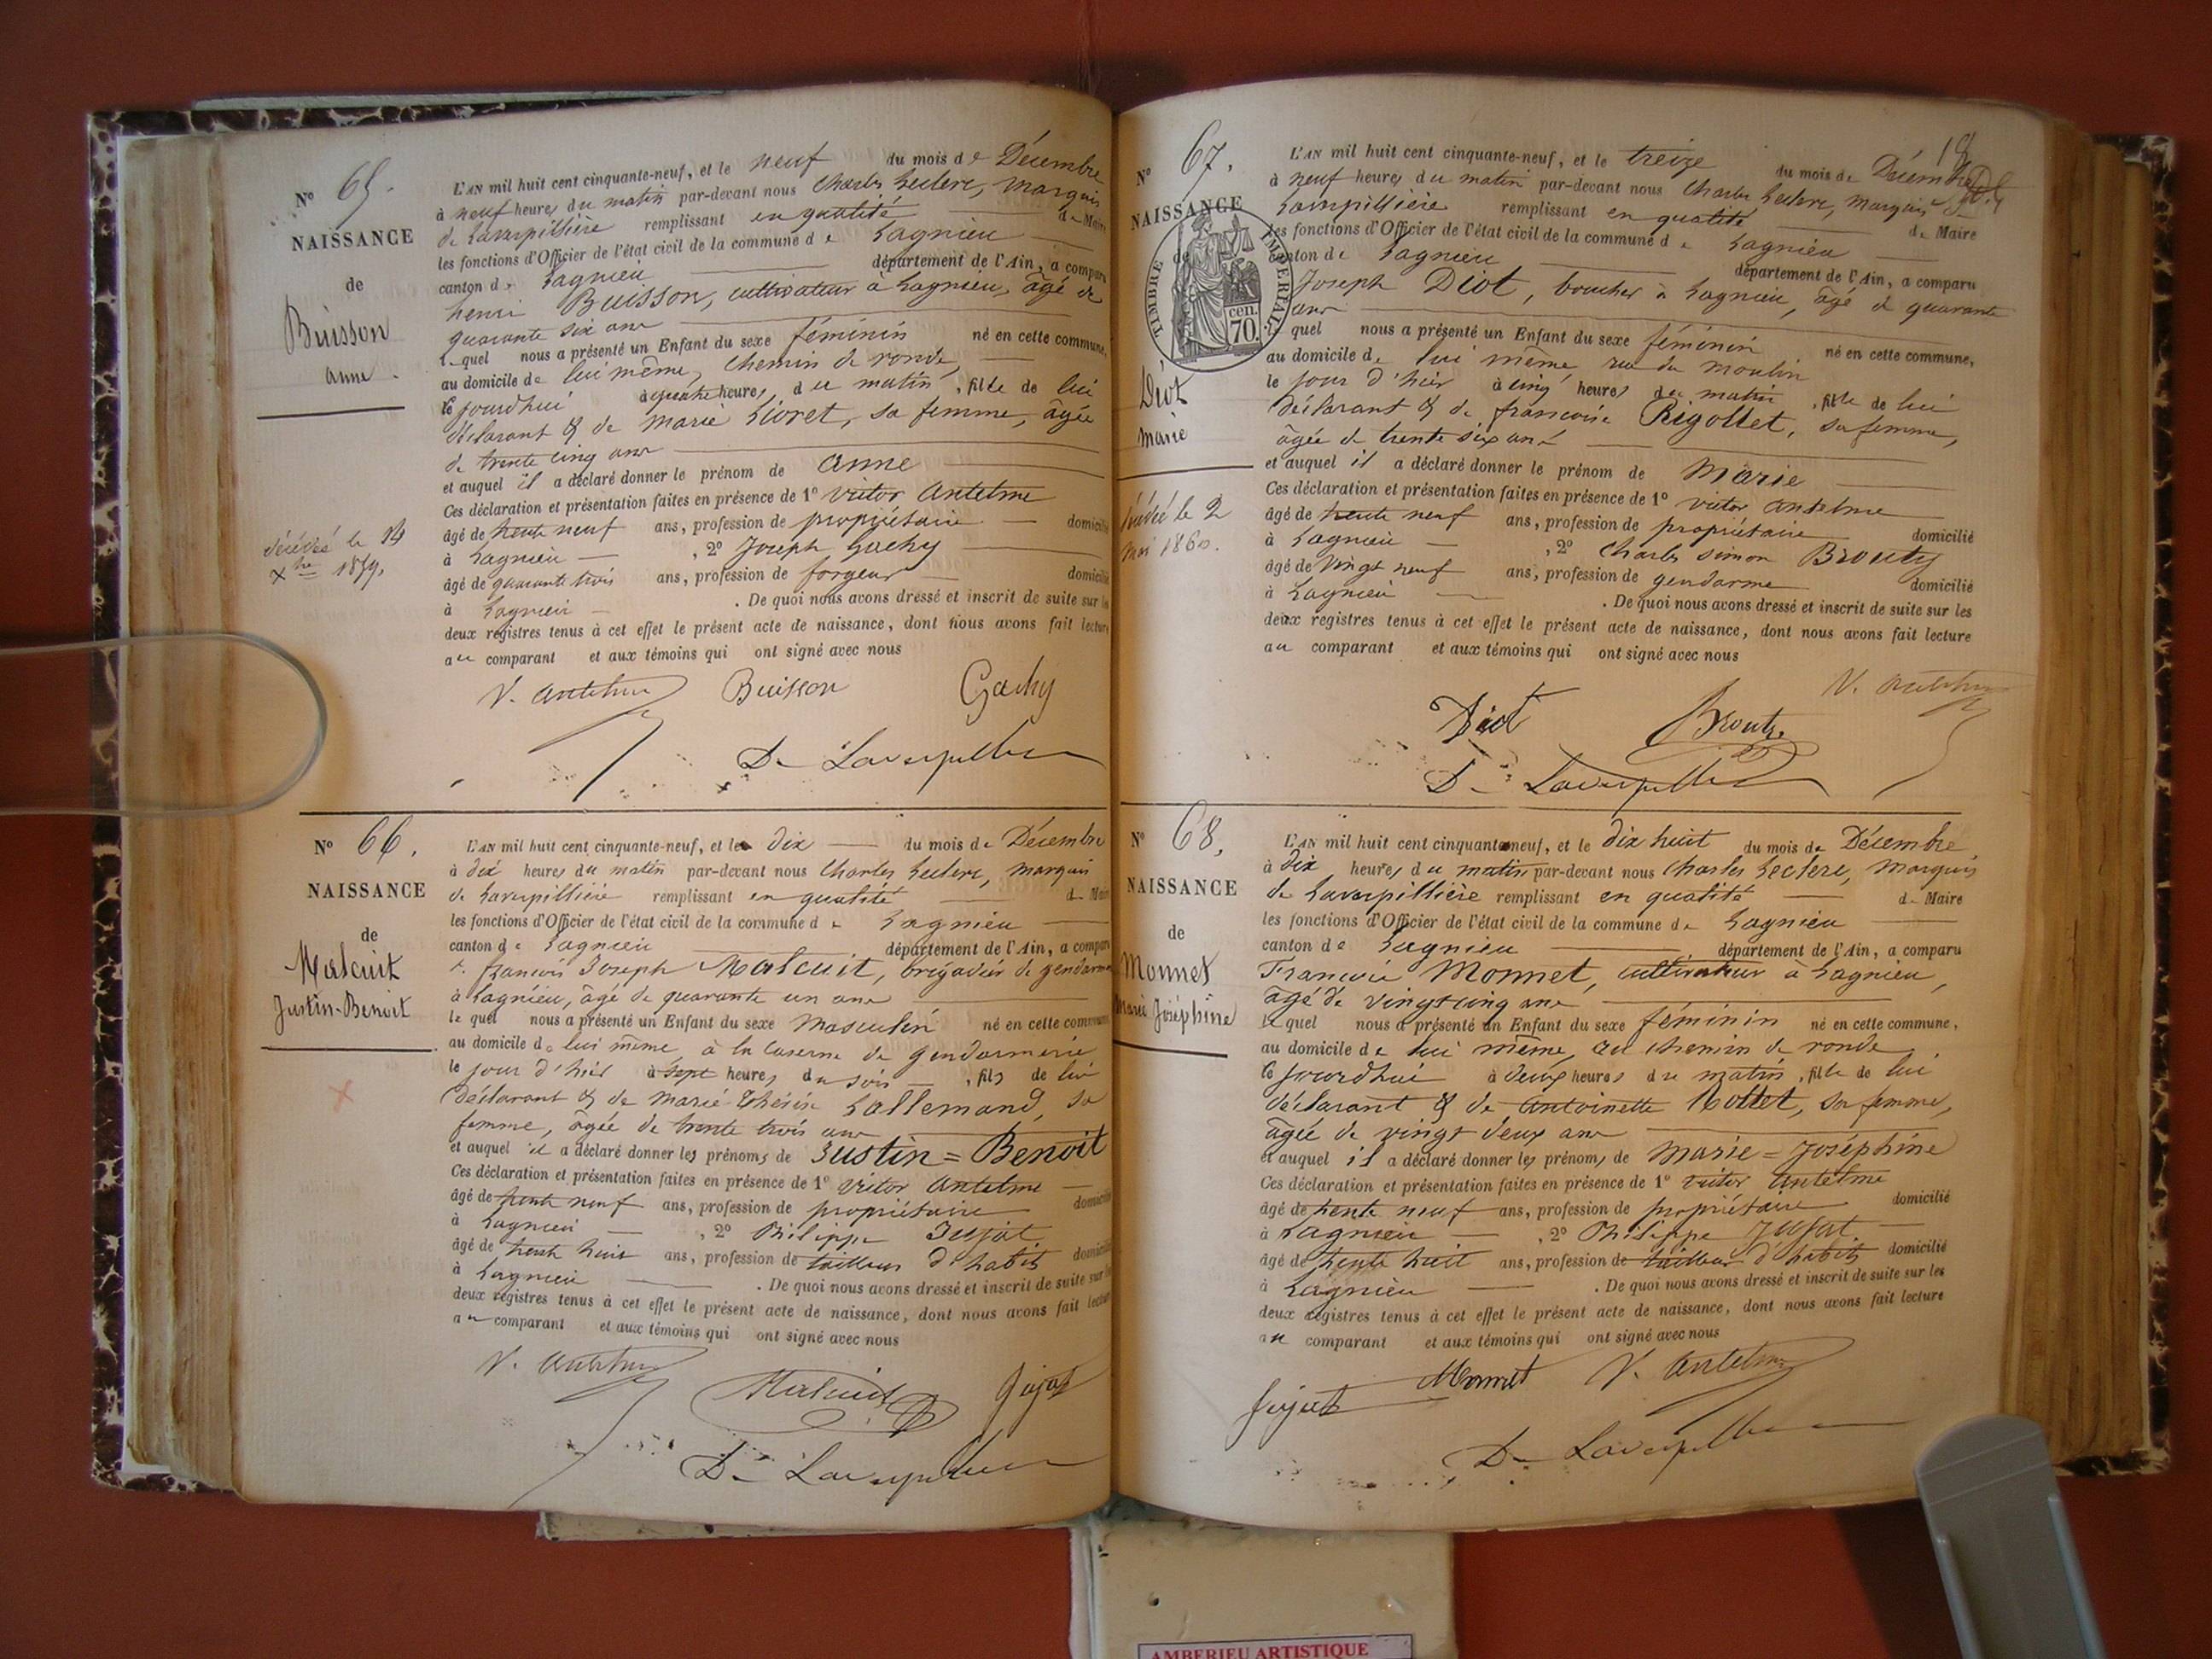 Nº 65.
NAISSANCE
de
Buisson
anne
décédée le 14
Xbre 1859.
L'AN mil huit cent cinquante-neuf, et le neuf du mois de Décembre
à neuf heures du matin par-devant nous Charles Leclerc, marquis
de Lavarpillière remplissant en qualité de Maire
les fonctions d'Officier de l'état civil de la commune de Lagnieu
canton de Lagnieu département de l'Ain, a comparu
henri Buisson, cultivateur à Lagnieu, âgé de
quarante six ans
lequel nous a présenté un Enfant du sexe féminin né en cette commune,
au domicile de lui même, chemin de ronde,
le jourdhui à quatre heures du matin, fille de lui
déclarant & de marie Livret, sa femme, âgée
de trente cinq ans
et auquel il a déclaré donner le prénom de anne
Ces déclaration et présentation faites en présence de 1º victor antelme
âgé de trente neuf ans, profession de propriétaire domicilié
à Lagnieu, 2º Joseph Gachy
âgé de quarante trois ans, profession de forgeur domicilié
à Lagnieu. De quoi nous avons dressé et inscrit de suite sur les
deux registres tenus à cet effet le présent acte de naissance, dont nous avons fait lecture
au comparant et aux témoins qui ont signé avec nous
V. antelme Buisson Gachy
De Lavarpillière
Nº 66.
NAISSANCE
de
Malcuit
Justin-Benoit
L'AN mil huit cent cinquante-neuf, et le dix du mois de Décembre
à dix heures du matin par-devant nous Charles Leclerc, marquis
de Lavarpillière remplissant en qualité de Maire
les fonctions d'Officier de l'état civil de la commune de Lagnieu
canton de Lagnieu département de l'Ain, a comparu
françois Joseph Malcuit, brigadier de gendarmerie
à Lagnieu, âgé de quarante un ans
lequel nous a présenté un Enfant du sexe masculin né en cette commune
au domicile de lui même, à la caserne de gendarmerie
le jour d'hier à sept heures du soir, fils de lui
déclarant & de marie Thérèse Lallemand, sa
femme, âgée de trente trois ans
et auquel il a déclaré donner les prénoms de Justin=Benoit
Ces déclaration et présentation faites en présence de 1º victor antelme
âgé de trente neuf ans, profession de propriétaire domicilié
à Lagnieu, 2º Philippe Jujat
âgé de trente huit ans, profession de tailleur d'habits domicilié
à Lagnieu. De quoi nous avons dressé et inscrit de suite sur les
deux registres tenus à cet effet le présent acte de naissance, dont nous avons fait lecture
au comparant et aux témoins qui ont signé avec nous
V. antelme Malcuit Jujat
De Lavarpillière
18
Nº 67.
NAISSANCE
de
TIMBRE IMPERIAL
70 cen.
Diot
marie
décédée le 2
mai 1860.
L'AN mil huit cent cinquante-neuf, et le treize du mois de Décembre
à neuf heures du matin par-devant nous Charles Leclerc, marquis de
Lavarpillière remplissant en qualité de Maire
les fonctions d'Officier de l'état civil de la commune de Lagnieu
canton de Lagnieu département de l'Ain, a comparu
Joseph Diot, boucher à Lagnieu, âgé de quarante
ans
quel nous a présenté un Enfant du sexe féminin né en cette commune,
au domicile de lui même, rue du moulin
le jour d'hier à cinq heures du matin, fille de lui
déclarant & de françoise Rigollet, sa femme,
âgée de trente six ans
et auquel il a déclaré donner le prénom de Marie
Ces déclaration et présentation faites en présence de 1º victor antelme
âgé de trente neuf ans, profession de propriétaire domicilié
à Lagnieu, 2º Charles simon Brouty
âgé de vingt neuf ans, profession de gendarme domicilié
à Lagnieu. De quoi nous avons dressé et inscrit de suite sur les
deux registres tenus à cet effet le présent acte de naissance, dont nous avons fait lecture
au comparant et aux témoins qui ont signé avec nous
V. antelme
Diot Brouty
De Lavarpillière
Nº 68.
NAISSANCE
de
Monnet
Marie Joséphine
L'AN mil huit cent cinquante-neuf, et le dix huit du mois de Décembre
à dix heures du matin par-devant nous Charles Leclerc, Marquis
de Lavarpillière remplissant en qualité de Maire
les fonctions d'Officier de l'état civil de la commune de Lagnieu
canton de Lagnieu département de l'Ain, a comparu
François Monnet, cultivateur à Lagnieu,
âgé de vingt cinq ans
lequel nous a présenté un Enfant du sexe féminin né en cette commune,
au domicile de lui même, au chemin de ronde
le jourdhui à deux heures du matin, fille de lui
déclarant & de antoinette Rollet, sa femme,
âgée de vingt deux ans
et auquel il a déclaré donner les prénoms de marie=Joséphine
Ces déclaration et présentation faites en présence de 1º victor antelme
âgé de trente neuf ans, profession de propriétaire domicilié
à Lagnieu, 2º Philippe Jujat
âgé de trente huit ans, profession de tailleur d'habits domicilié
à Lagnieu. De quoi nous avons dressé et inscrit de suite sur les
deux registres tenus à cet effet le présent acte de naissance, dont nous avons fait lecture
au comparant et aux témoins qui ont signé avec nous
Jujat Monnet V. antelme
De Lavarpillière
AMBERIEU ARTISTIQUE